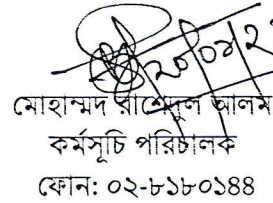 ২০/০৯/২
মোহাম্মদ রাশেদুল আলম
কর্মসূচি পরিচালক
ফোন: ০২-৮১৮০১৪৪